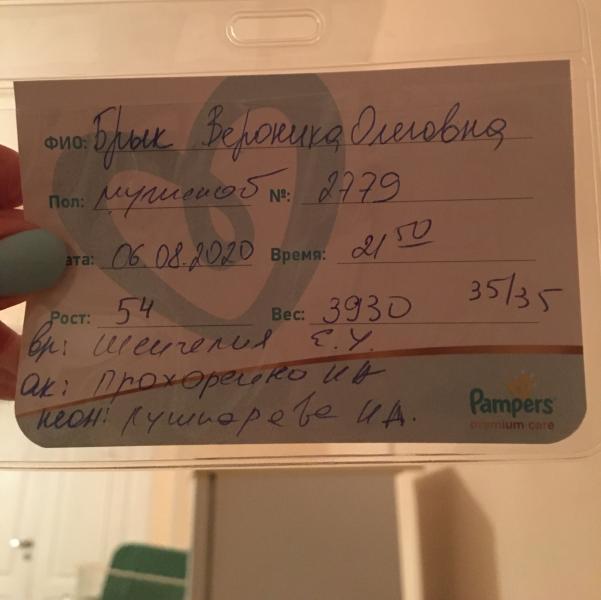 ФИО: Брык Вероника Олеговна
Пол: мужской №: 2779
ата: 06.08.2020 Время: 21 50
Рост: 54 Вес: 3930 35/35
вр: Шенгелия Е.У.
ак: Прохоренко НА
неон: Кушнарева И.А.
Pampers
premium care